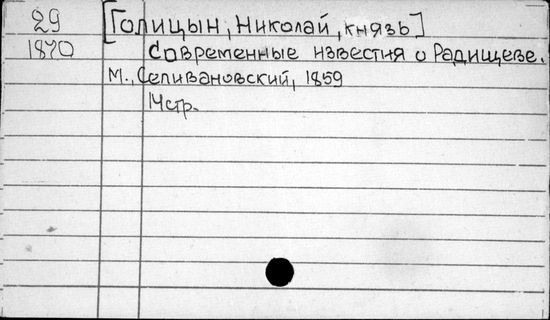 29 [Голицын, Николай, князь]
1870 Современные известия о Радищеве.
М., Селивановский, 1859
14стр.